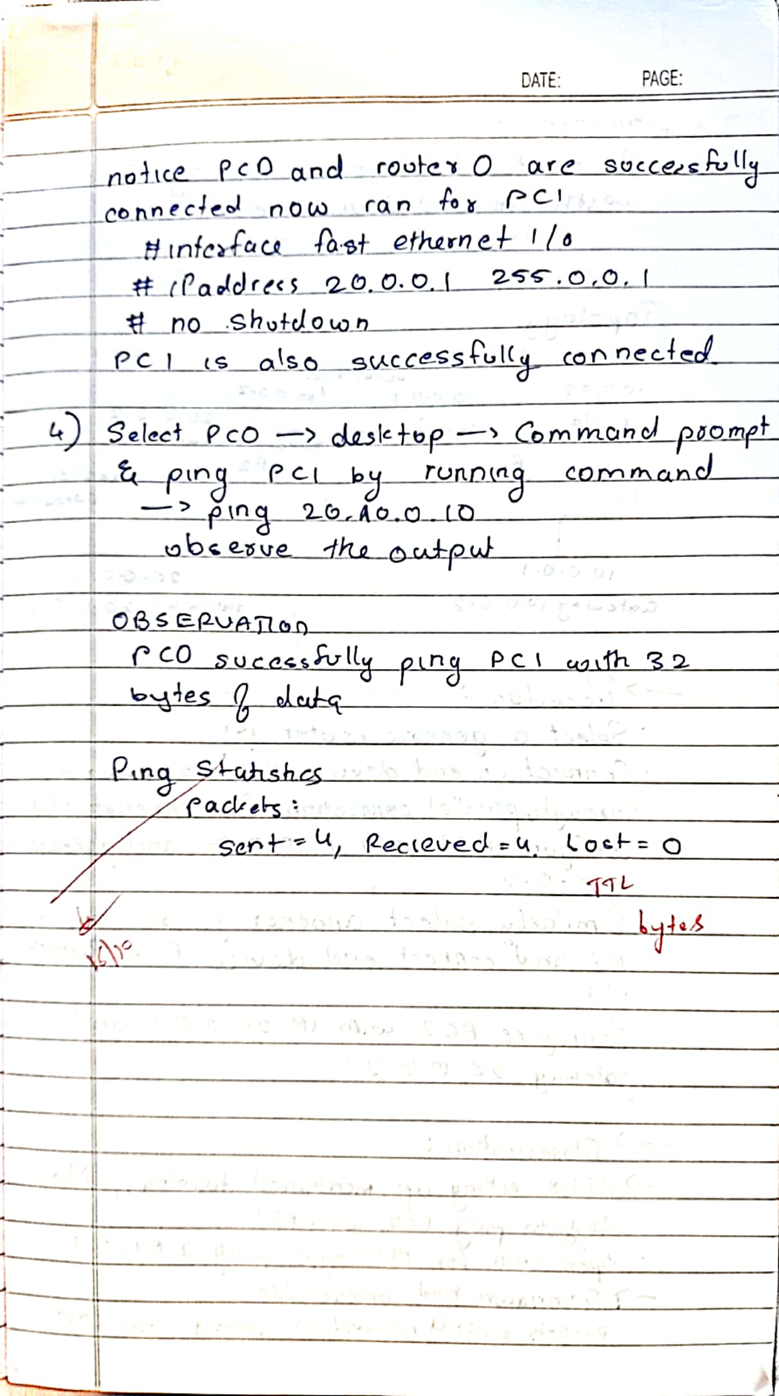 DATE: PAGE:
notice PC0 and router 0 are successfully
connected now ran for PC1
# interface fast ethernet 1/0
# ipaddress 20.0.0.1 255.0.0.1
# no shutdown
PC1 is also successfully connected
4) Select PC0 → desktop → Command prompt
& ping PC1 by running command
→ ping 20.10.0.10
observe the output
OBSERVATION
PC0 sucessfully ping PC1 with 32
bytes of data
Ping Statistics
Packets:
Sent = 4, Recieved = 4, Lost = 0
TTL
bytes